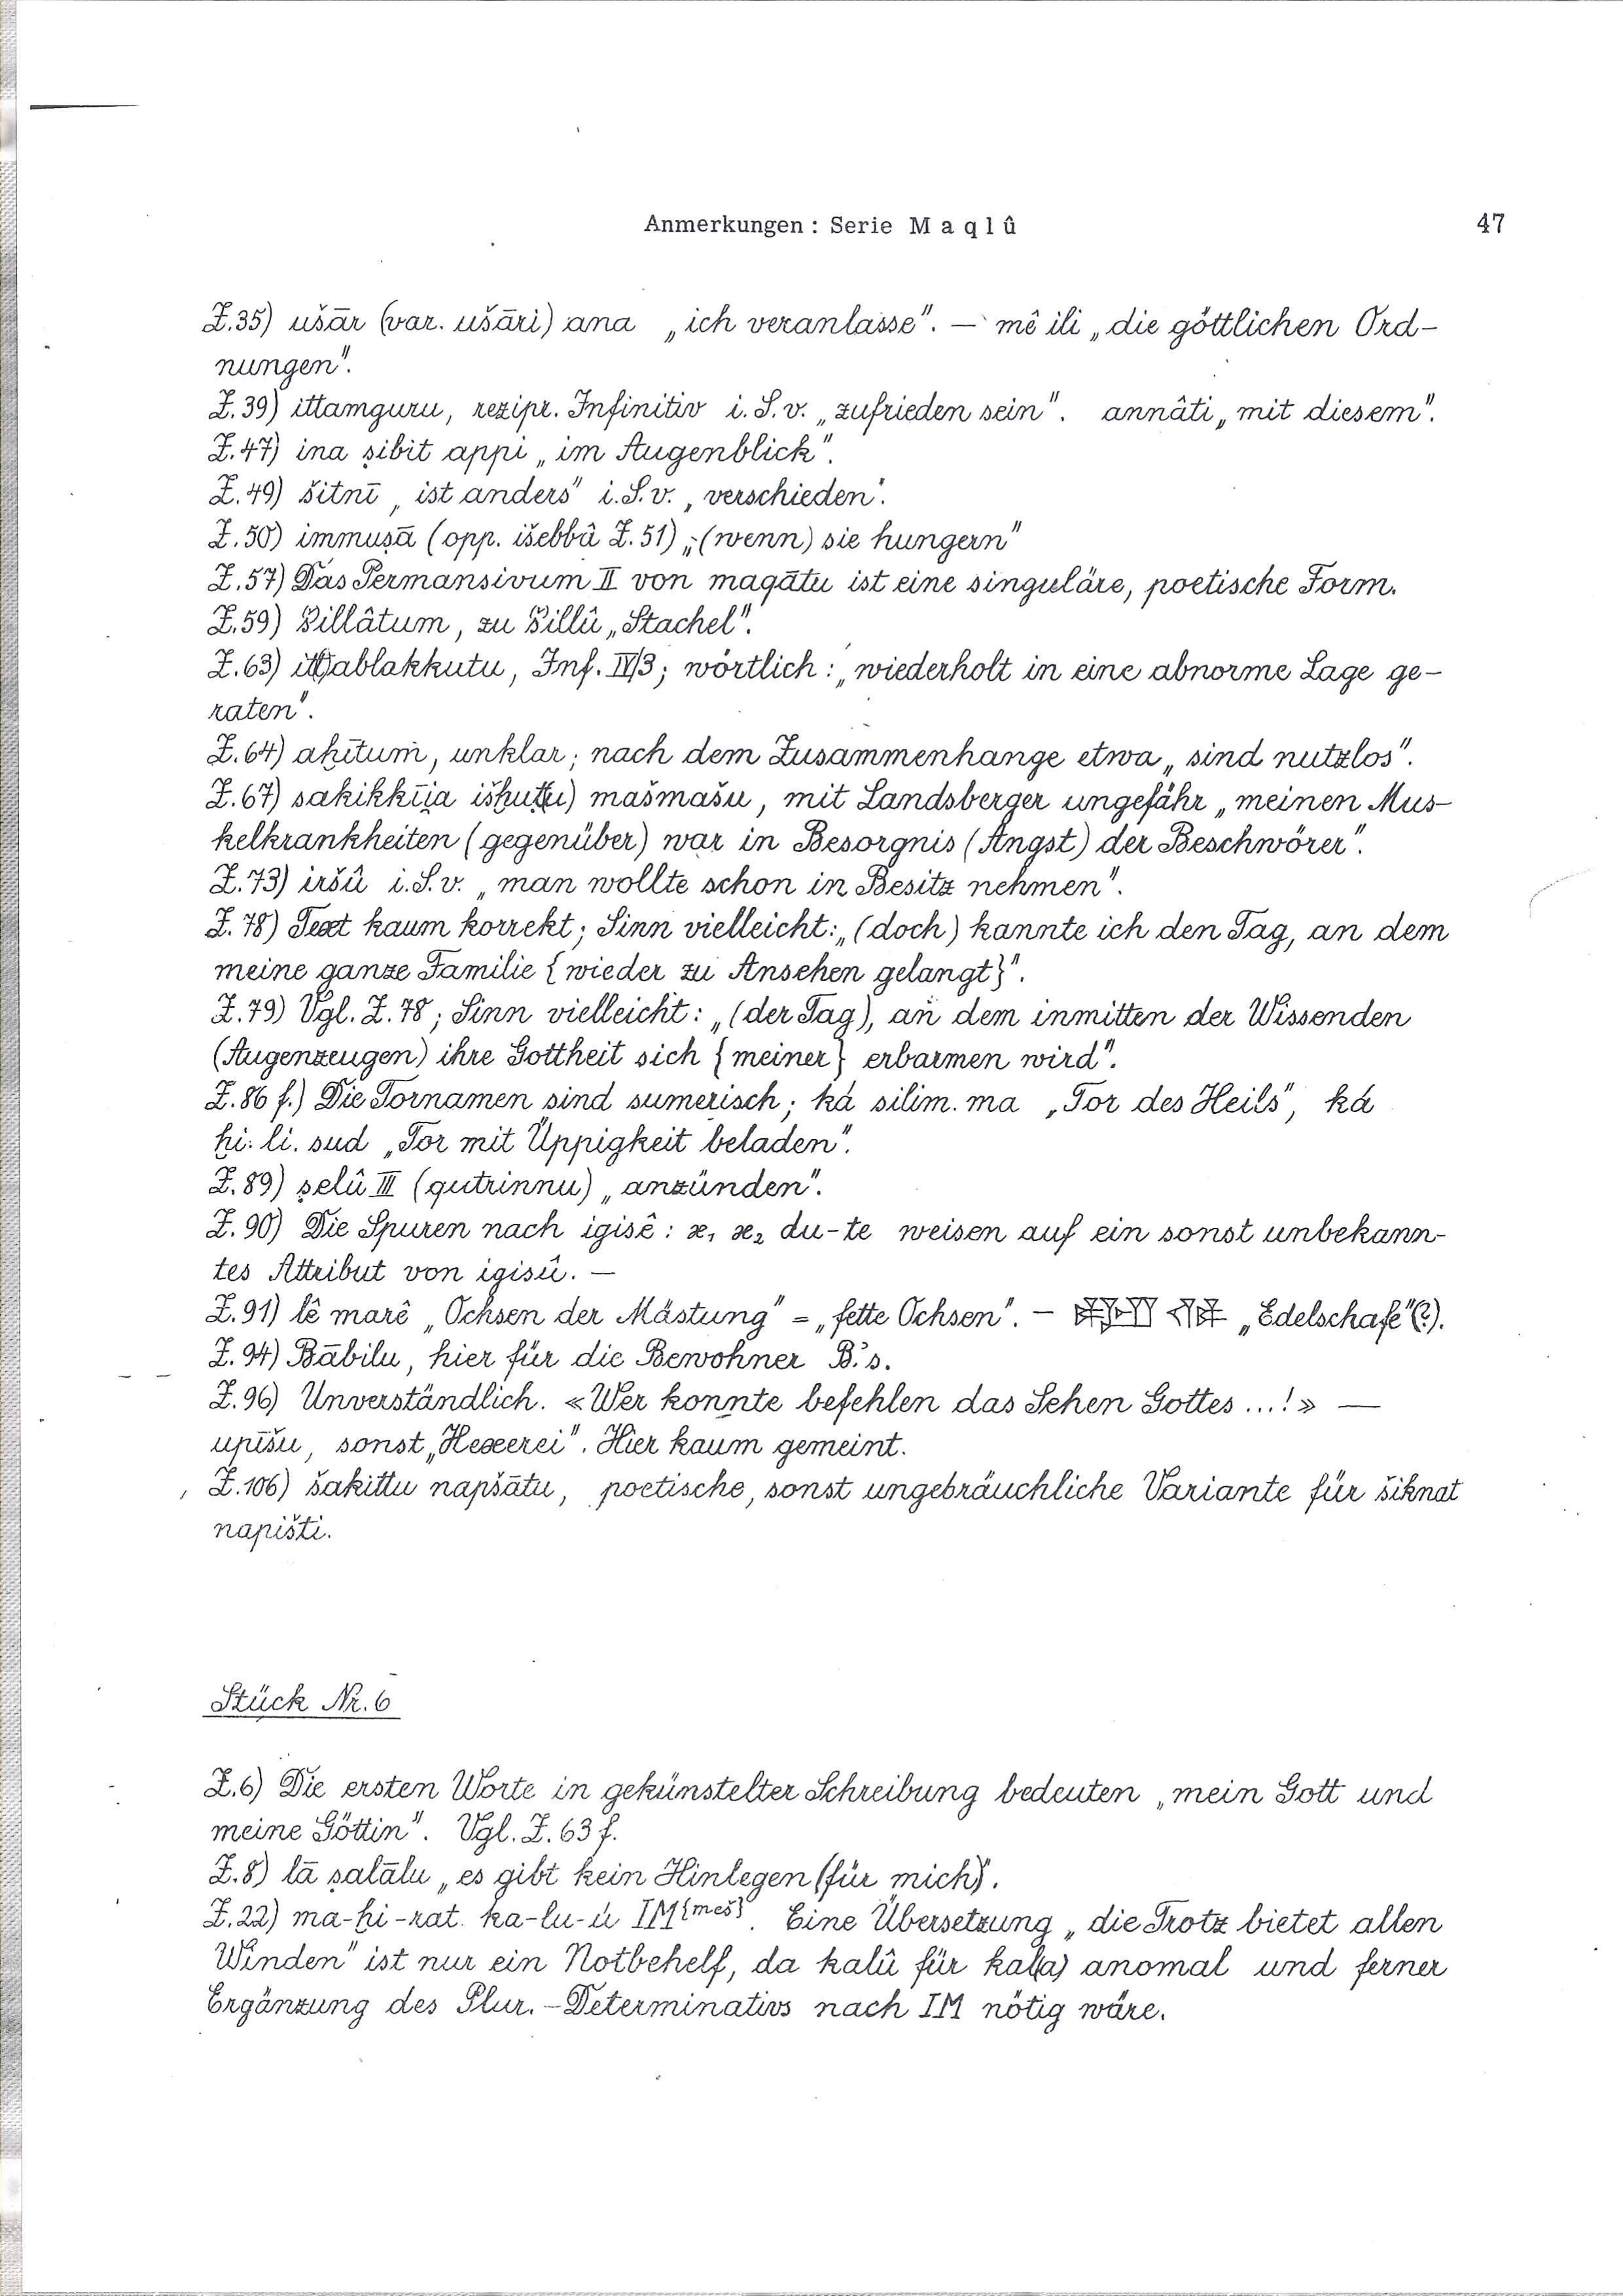 Anmerkungen : Serie Maqlû
47
Z.35) ušār (var. ušāri) ana „ich veranlasse". — mê ili „die göttlichen Ord-
nungen".
Z.39) ittamguru, rezipr. Infinitiv i.S.v. „zufrieden sein". annâti „mit diesem".
Z.47) ina ṣibit appi „im Augenblick".
Z.49) šitnī „ist anders" i.S.v. „verschieden".
Z.50) immuṣā (opp. išebbâ Z.51) „(wenn) sie hungern"
Z.57) Das Permansivum II von maqātu ist eine singuläre, poetische Form.
Z.59) Zillâtum, zu Zillû „Stachel".
Z.63) ablakkutu, Inf. IV/3; wörtlich: „wiederholt in eine abnorme Lage ge-
raten".
Z.64) aḫītum, unklar; nach dem Zusammenhange etwa „sind nutzlos".
Z.67) sakikkīja išḫuṭ(u) mašmašu, mit Landsberger ungefähr „meinen Mus-
kelkrankheiten (gegenüber) war in Besorgnis (Angst) der Beschwörer".
Z.73) iršû i.S.v. „man wollte schon in Besitz nehmen".
Z.78) Text kaum korrekt; Sinn vielleicht: „(doch) kannte ich den Tag, an dem
meine ganze Familie {wieder zu Ansehen gelangt}".
Z.79) Vgl. Z.78; Sinn vielleicht: „(der Tag), an dem inmitten der Wissenden
(Augenzeugen) ihre Gottheit sich {meiner} erbarmen wird".
Z.86 f.) Die Tornamen sind sumerisch; ká silim.ma „Tor des Heils", ká
ḫi.li.sud „Tor mit Üppigkeit beladen".
Z.89) ṣelû III (qutrinnu) „anzünden".
Z.90) Die Spuren nach igisê: x₁ x₂ du-te weisen auf ein sonst unbekann-
tes Attribut von igisû. —
Z.91) lê marê „Ochsen der Mästung" = „fette Ochsen". — „Edelschafe"(?).
Z.94) Bābilu, hier für die Bewohner B.'s.
Z.96) Unverständlich. «Wer konnte befehlen das Sehen Gottes ...!» —
upīšu, sonst „Hexerei". Hier kaum gemeint.
Z.106) šakittu napšātu, poetische, sonst ungebräuchliche Variante für šiknat
napišti.
Stück Nr.6
Z.6) Die ersten Worte in gekünstelter Schreibung bedeuten „mein Gott und
meine Göttin". Vgl. Z.63 f.
Z.8) lā ṣalālu „es gibt kein Hinlegen (für mich)".
Z.22) ma-ḫi-rat ka-lu-ú IM{meš}. Eine Übersetzung „die Trotz bietet allen
Winden" ist nur ein Notbehelf, da kalû für kal(a) anomal und ferner
Ergänzung des Plur.-Determinativs nach IM nötig wäre.